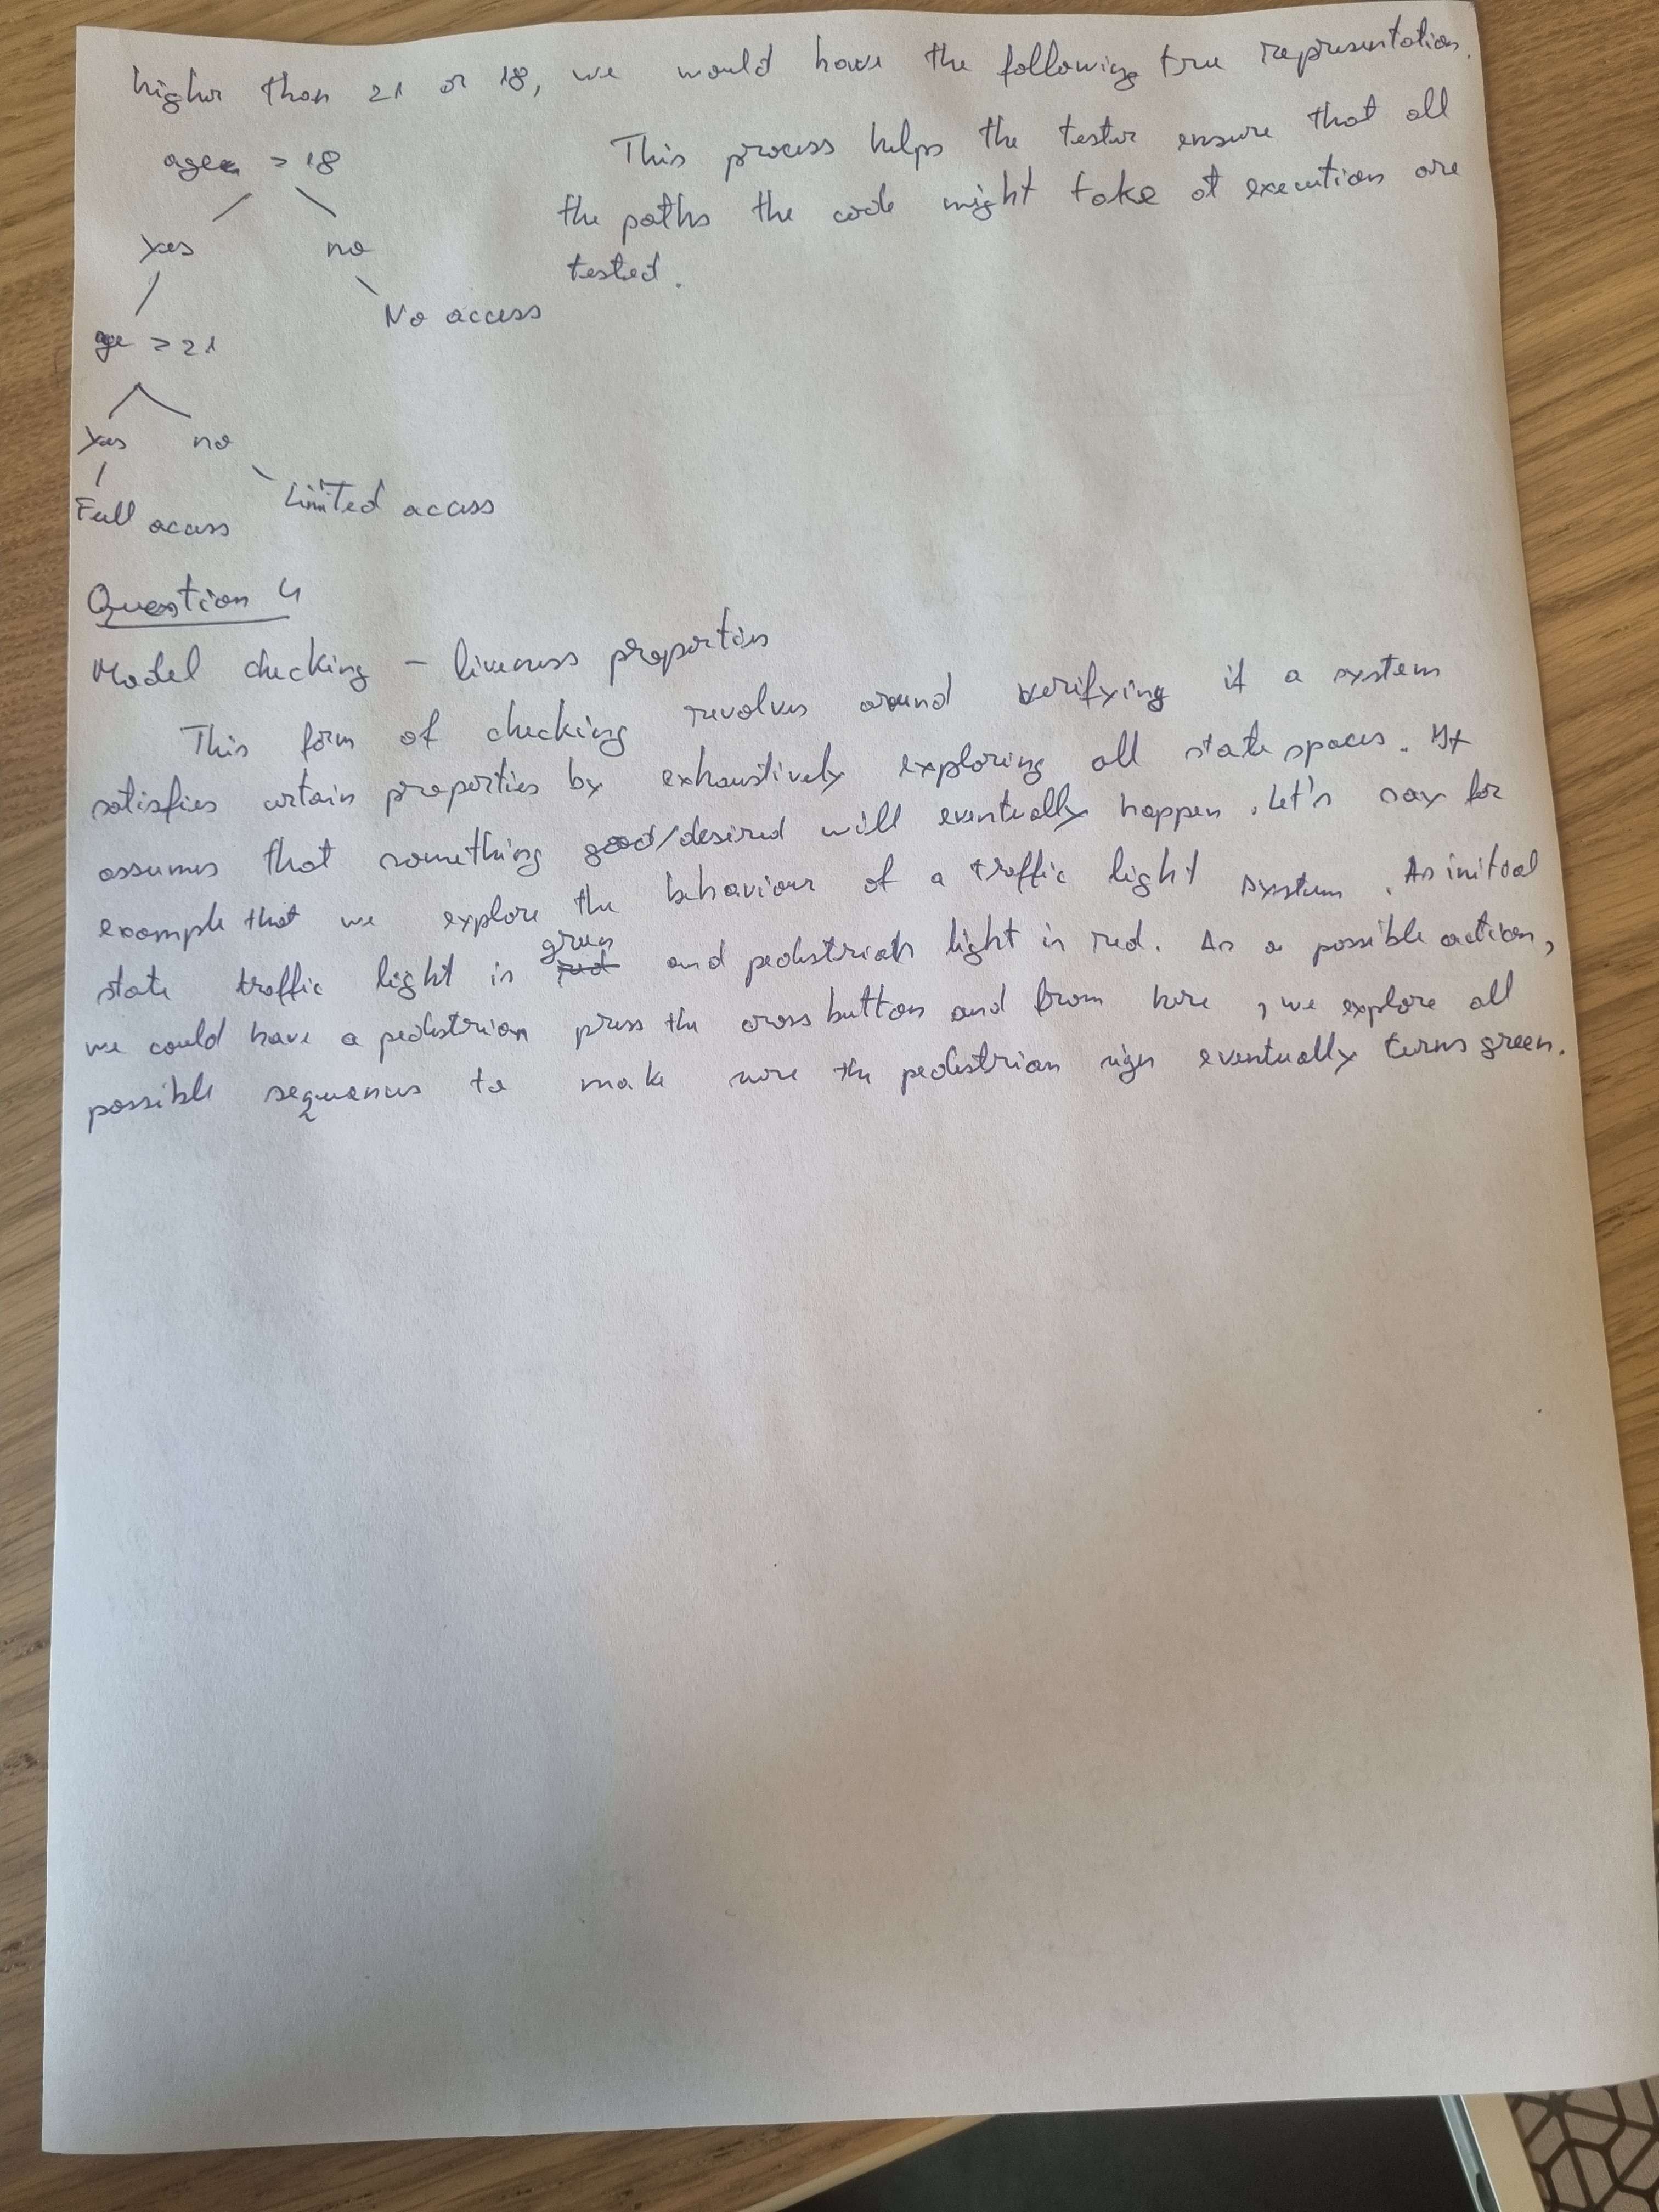 higher than 21 or 18, we would have the following tree representation.
This process helps the tester ensure that all
the paths the code might take at execution are
tested.
age > 18
yes no
No access
age > 21
yes no
Limited access
Full access
Question 4
Model checking - liveness properties
This form of checking revolves around verifying if a system
satisfies certain properties by exhaustively exploring all state spaces. It
assumes that something good/desired will eventually happen. Let's say for
example that we explore the behaviour of a traffic light system. As initial
state traffic light is green and pedestrian light is red. As a possible action,
we could have a pedestrian press the cross button and from here, we explore all
possible sequences to make sure the pedestrian sign eventually turns green.